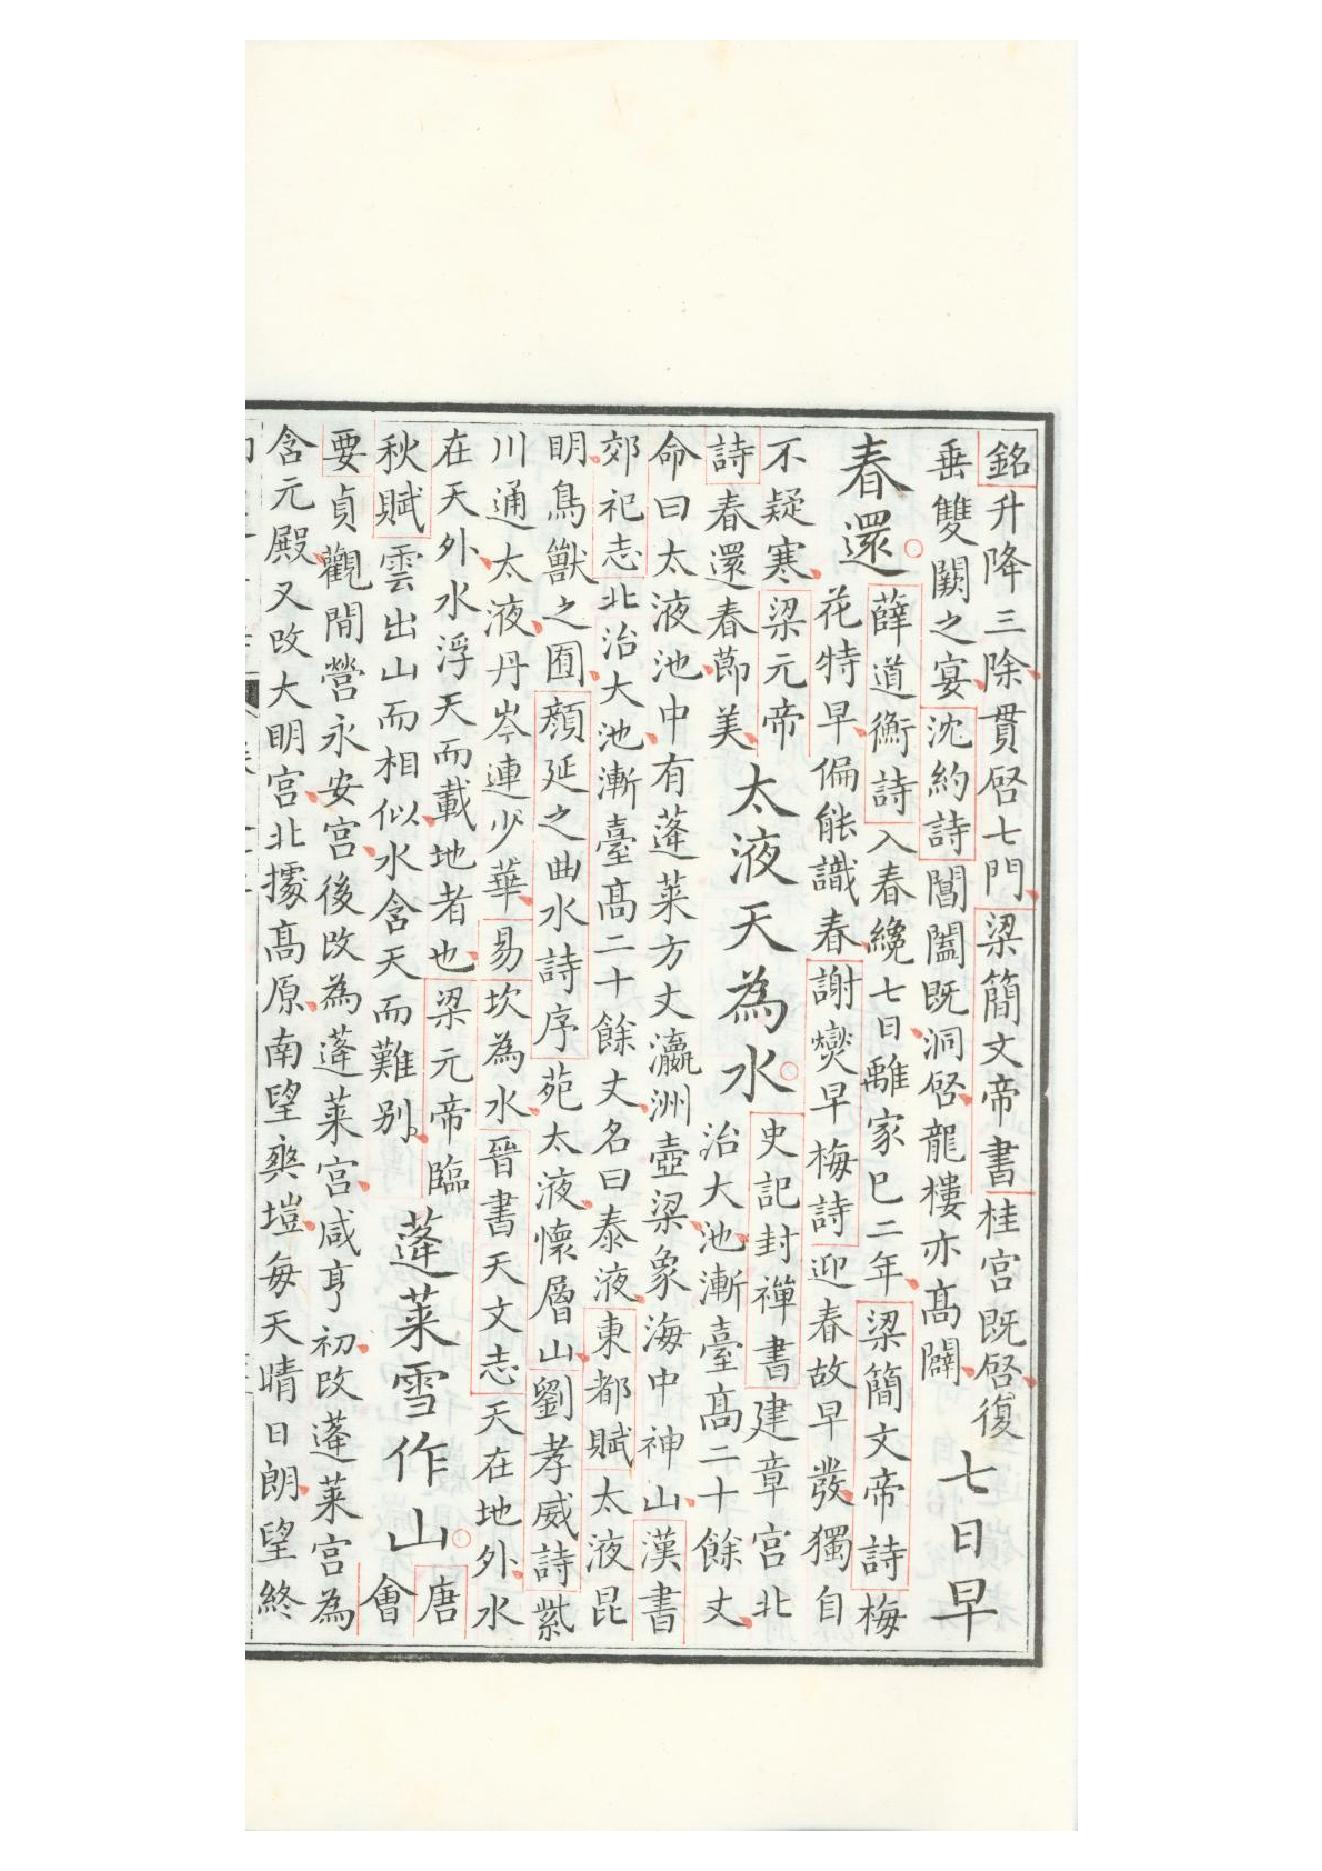 銘升降三除貫啓七門梁簡文帝書桂宮既啓復
垂雙闕之宴沈約詩閶闔既洞啓龍樓亦高闢
七日早
春還
薛道衡詩入春纔七日離家已二年梁簡文帝詩梅
花特早偏能識春謝爕早梅詩迎春故早發獨自
不疑寒梁元帝
詩春還春節美
太液天為水
史記封禪書建章宮北
治大池漸臺高二十餘丈
命曰太液池中有蓬萊方丈瀛洲壺梁象海中神山漢書
郊祀志北治大池漸臺高二十餘丈名曰泰液東都賦太液昆
明鳥獸之囿顏延之曲水詩序苑太液懷層山劉孝威詩紫
川通太液丹岑連少華易坎為水晉書天文志天在地外水
在天外水浮天而載地者也梁元帝臨
秋賦雲出山而相似水含天而難別
蓬萊雪作山
唐
會
要貞觀間營永安宮後改為蓬萊宮咸亨初改蓬萊宮為
含元殿又改大明宮北據高原南望爽塏每天晴日朗望終